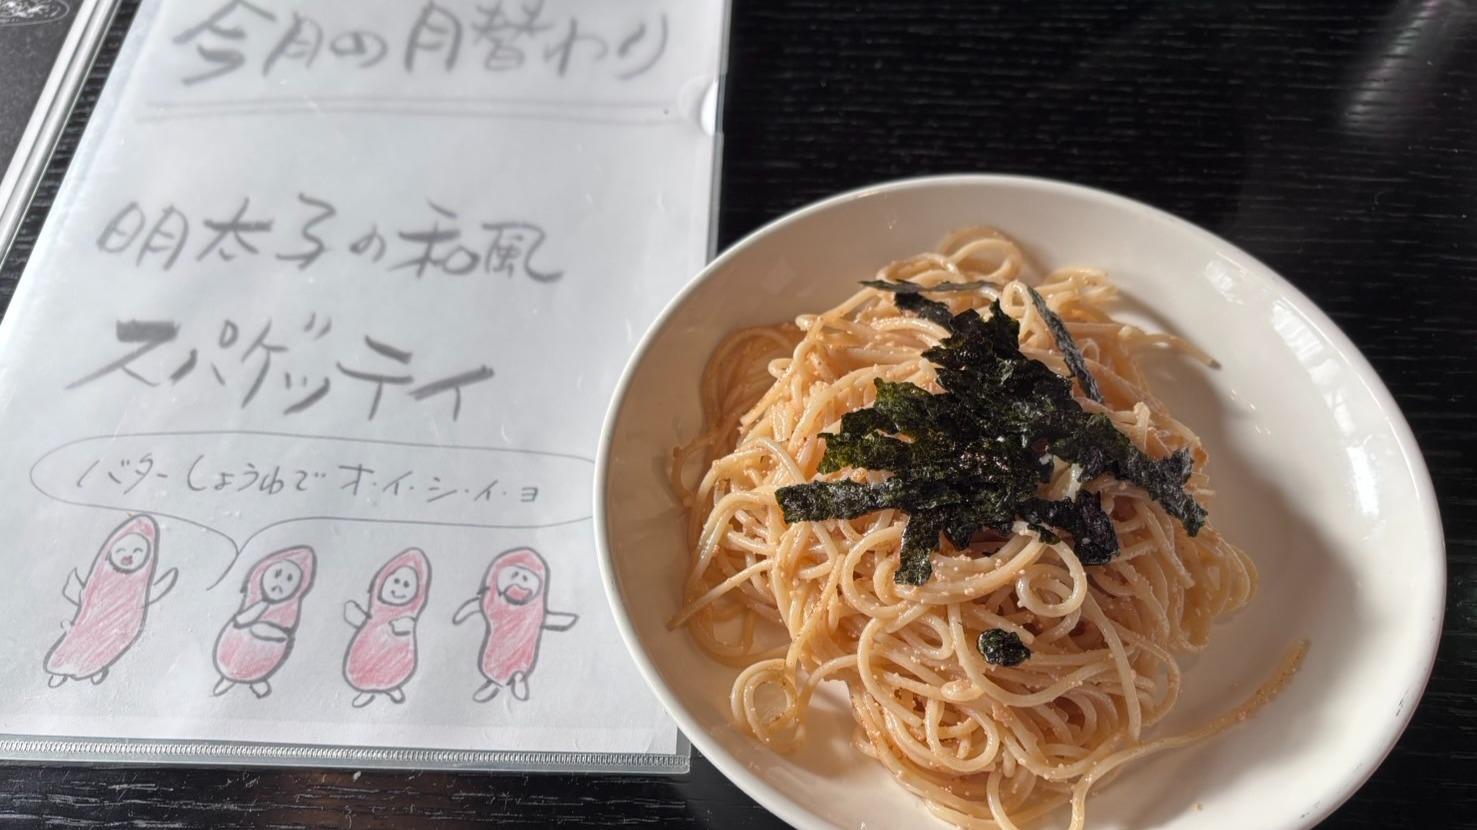 今月の月替わり
明太子の和風
スパゲッティ
バターしょうゆでオ・イ・シ・イ・ヨ